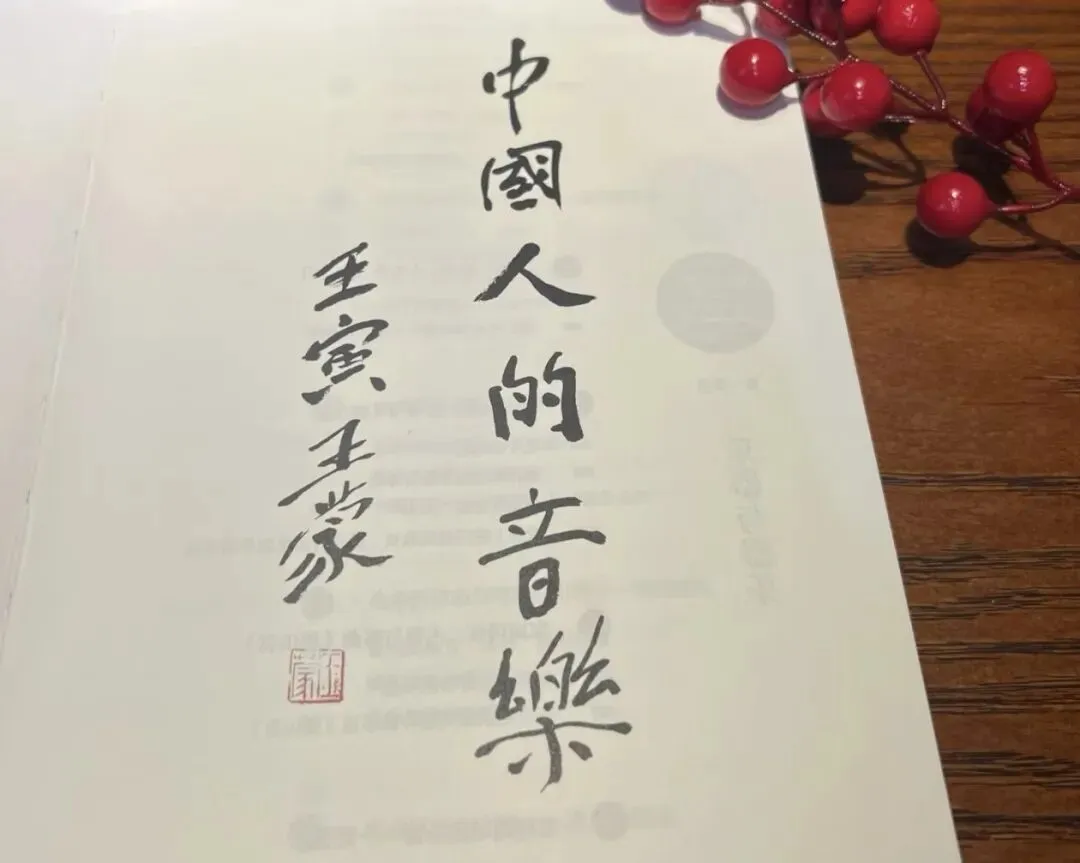 中國人的音樂
壬寅王蒙
王蒙